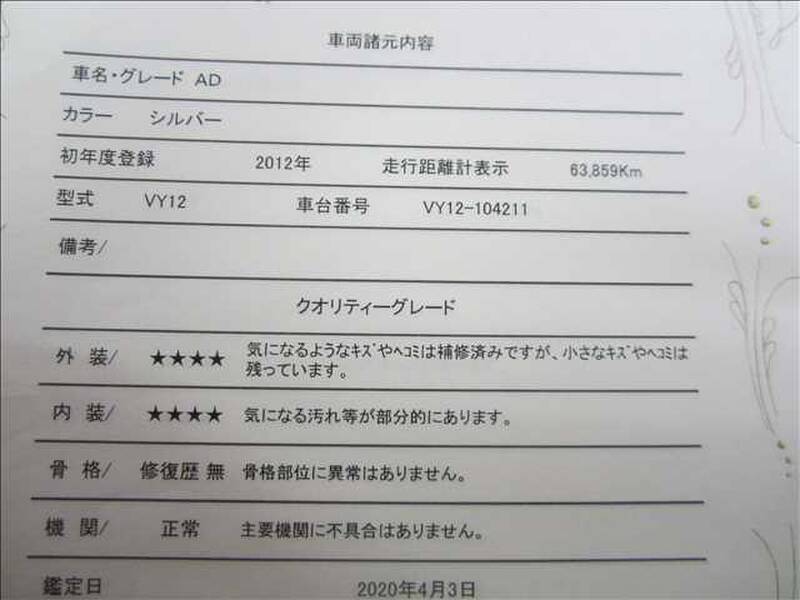 車両諸元内容
車名・グレード AD
カラー シルバー
初年度登録 2012年 走行距離計表示 63,859Km
型式 VY12 車台番号 VY12-104211
備考/
クオリティーグレード
外 装/ ★★★★ 気になるようなｷｽﾞやﾍｺﾐは補修済みですが、小さなｷｽﾞやﾍｺﾐは
残っています。
内 装/ ★★★★ 気になる汚れ等が部分的にあります。
骨 格/ 修復歴 無 骨格部位に異常はありません。
機 関/ 正常 主要機関に不具合はありません。
鑑定日 2020年4月3日